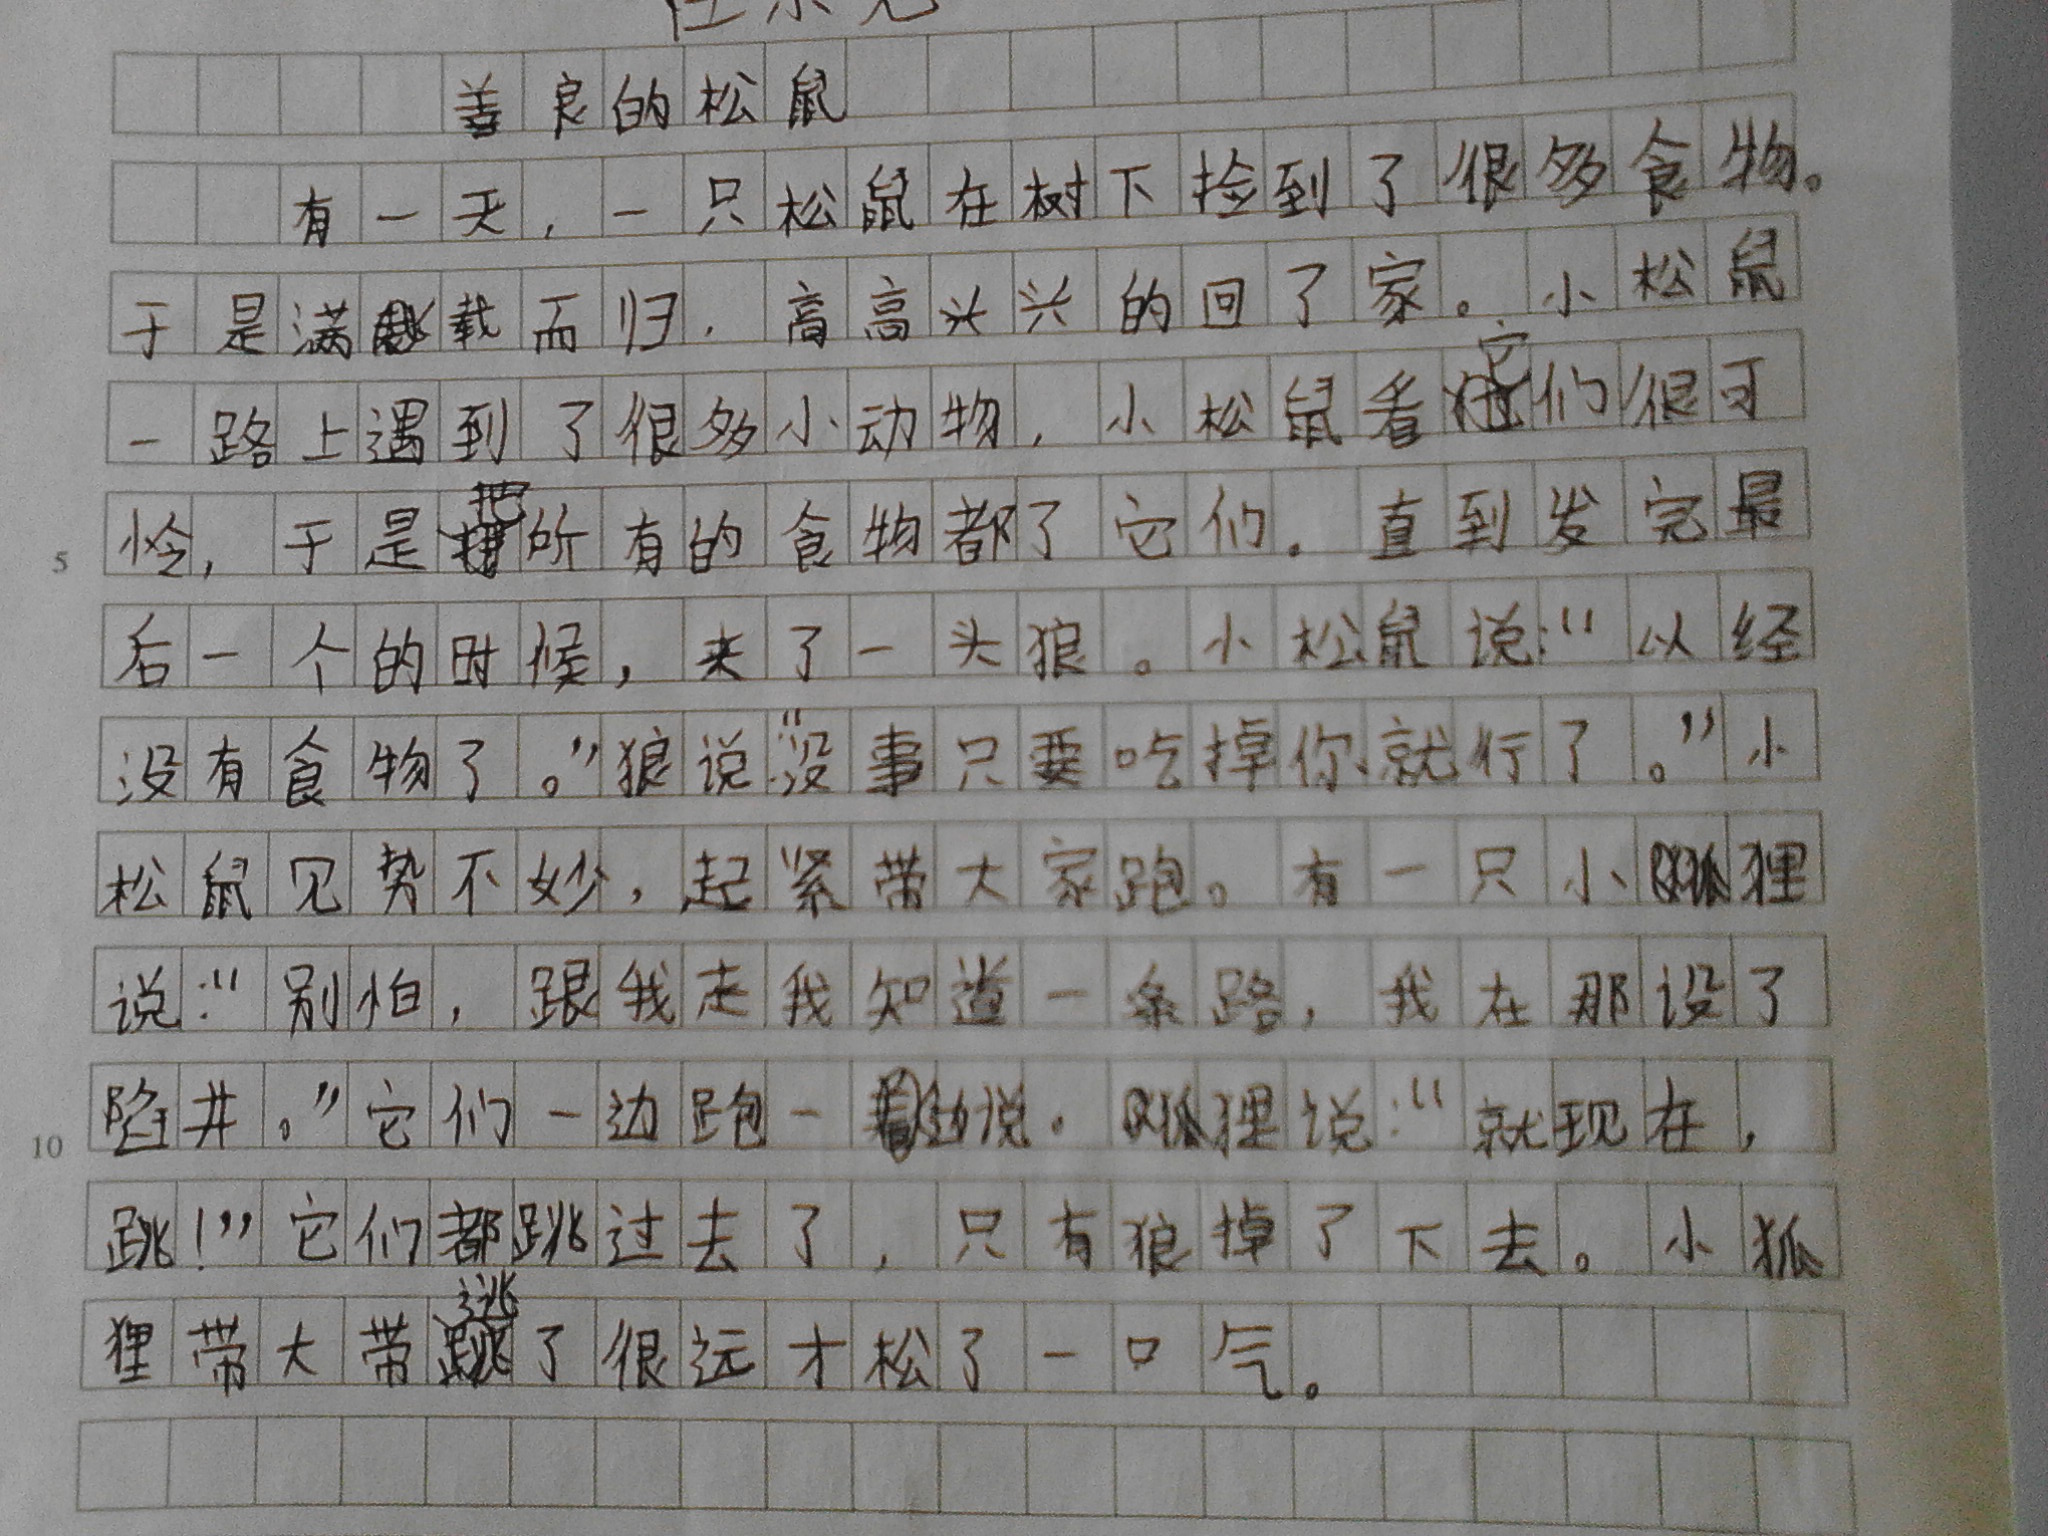 善良的松鼠
有一天，一只松鼠在树下捡到了很多食物。
于是满载而归，高高兴兴的回了家。小松鼠
一路上遇到了很多小动物，小松鼠看它们很可
怜，于是把所有的食物都了它们。直到发完最
后一个的时候，来了一头狼。小松鼠说：“以经
没有食物了。”狼说：“没事只要吃掉你就行了。”小
松鼠见势不妙，起紧带大家跑。有一只小狐狸
说：“别怕，跟我走我知道一条路，我在那设了
陷井。”它们一边跑一边说。狐狸说：“就现在，
跳！”它们都跳过去了，只有狼掉了下去。小狐
狸带大带逃了很远才松了一口气。
5
10